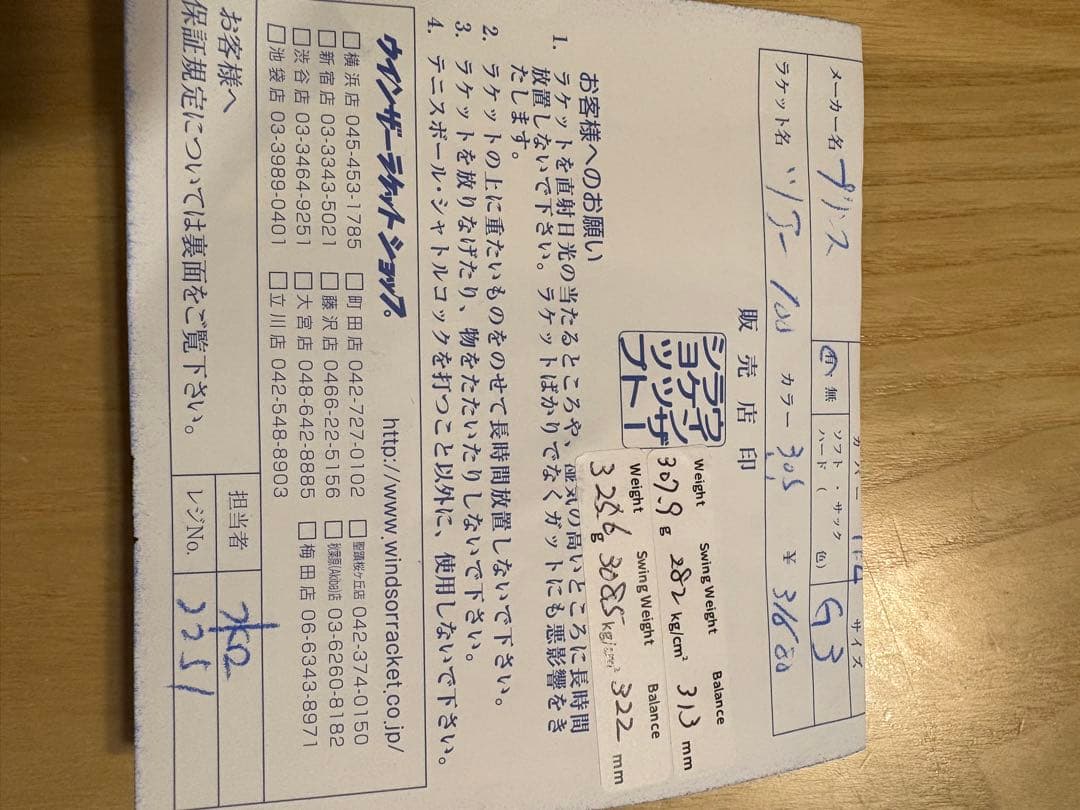 メーカー名 プリンス
カバー
サイズ
有・無
ソフト・サック
ハード( 色)
G3
ラケット名 ツアー 100 カラー 305 ¥ 31600
販売店印
ウインザー
ラケット
ショップ
Weight Swing Weight Balance
307.9 g 282 kg/cm² 313 mm
Weight Swing Weight Balance
325.6 g 308.5 kg/cm² 322 mm
お客様へのお願い
1. ラケットを直射日光の当たるところや、湿気の高いところに長時間
放置しないで下さい。ラケットばかりでなくガットにも悪影響をき
たします。
2. ラケットの上に重たいものをのせて長時間放置しないで下さい。
3. ラケットを放りなげたり、物をたたいたりしないで下さい。
4. テニスボール・シャトルコックを打つこと以外に、使用しないで下さい。
ウインザーラケットショップ。 http://www.windsorracket.co.jp/
□横浜店 045-453-1785 □町田店 042-727-0102 □聖蹟桜ヶ丘店 042-374-0150
□新宿店 03-3343-5021 □藤沢店 0466-22-5156 □秋葉原(Akiba)店 03-6260-8182
□渋谷店 03-3464-9251 □大宮店 048-642-8885 □梅田店 06-6343-8971
□池袋店 03-3989-0401 □立川店 042-548-8903
お客様へ
保証規定については裏面をご覧下さい。
担当者
レジNo. 3251